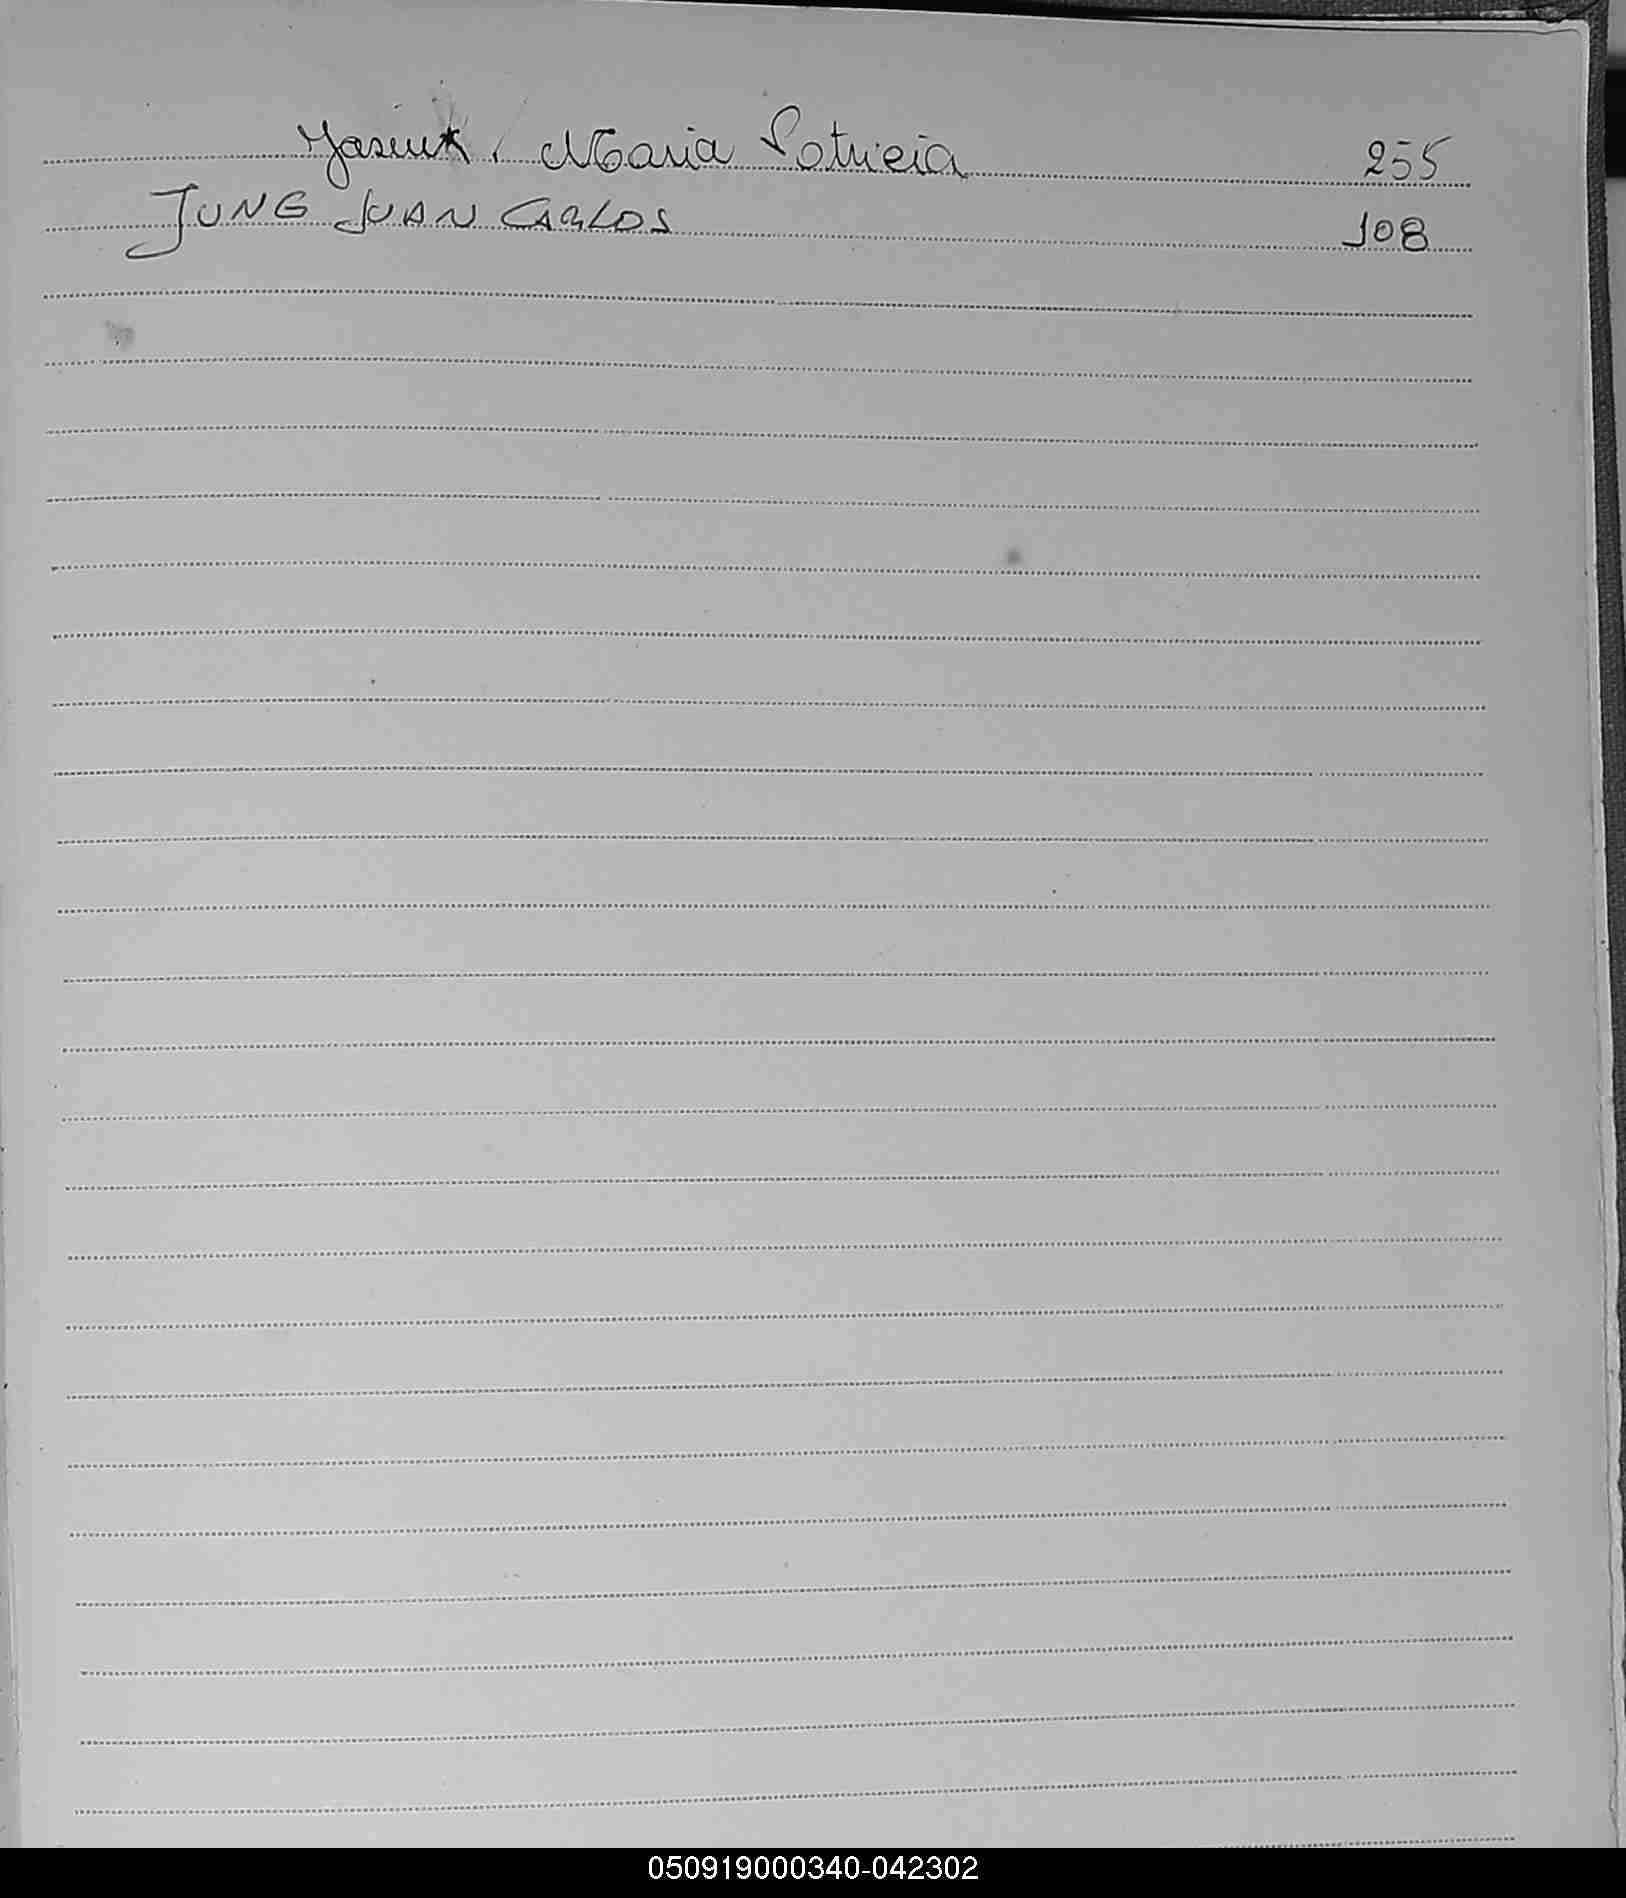 Jasiuk, Maria Patricia 255
JUNG JUAN CARLOS 108
050919000340-042302